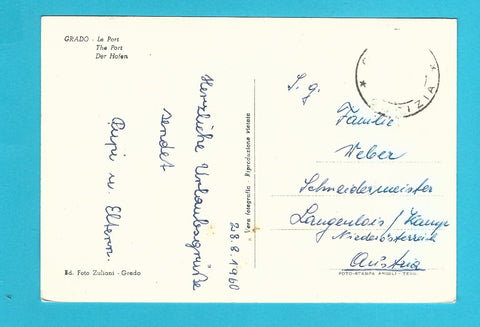 GRADO - Le Port
The Port
Der Hafen
Herzliche Urlaubsgrüße
sendet
Pupi u. Eltern.
28.8.1960
Ed. Foto Zuliani - Grado
Vera fotografia - Riproduzione vietata
IZIA
S. g.
Familie
Weber
Schneidermeister
Langenlois / Kamp
Niederösterreich
Austria
FOTO-STAMPA ANGELI - TERNI